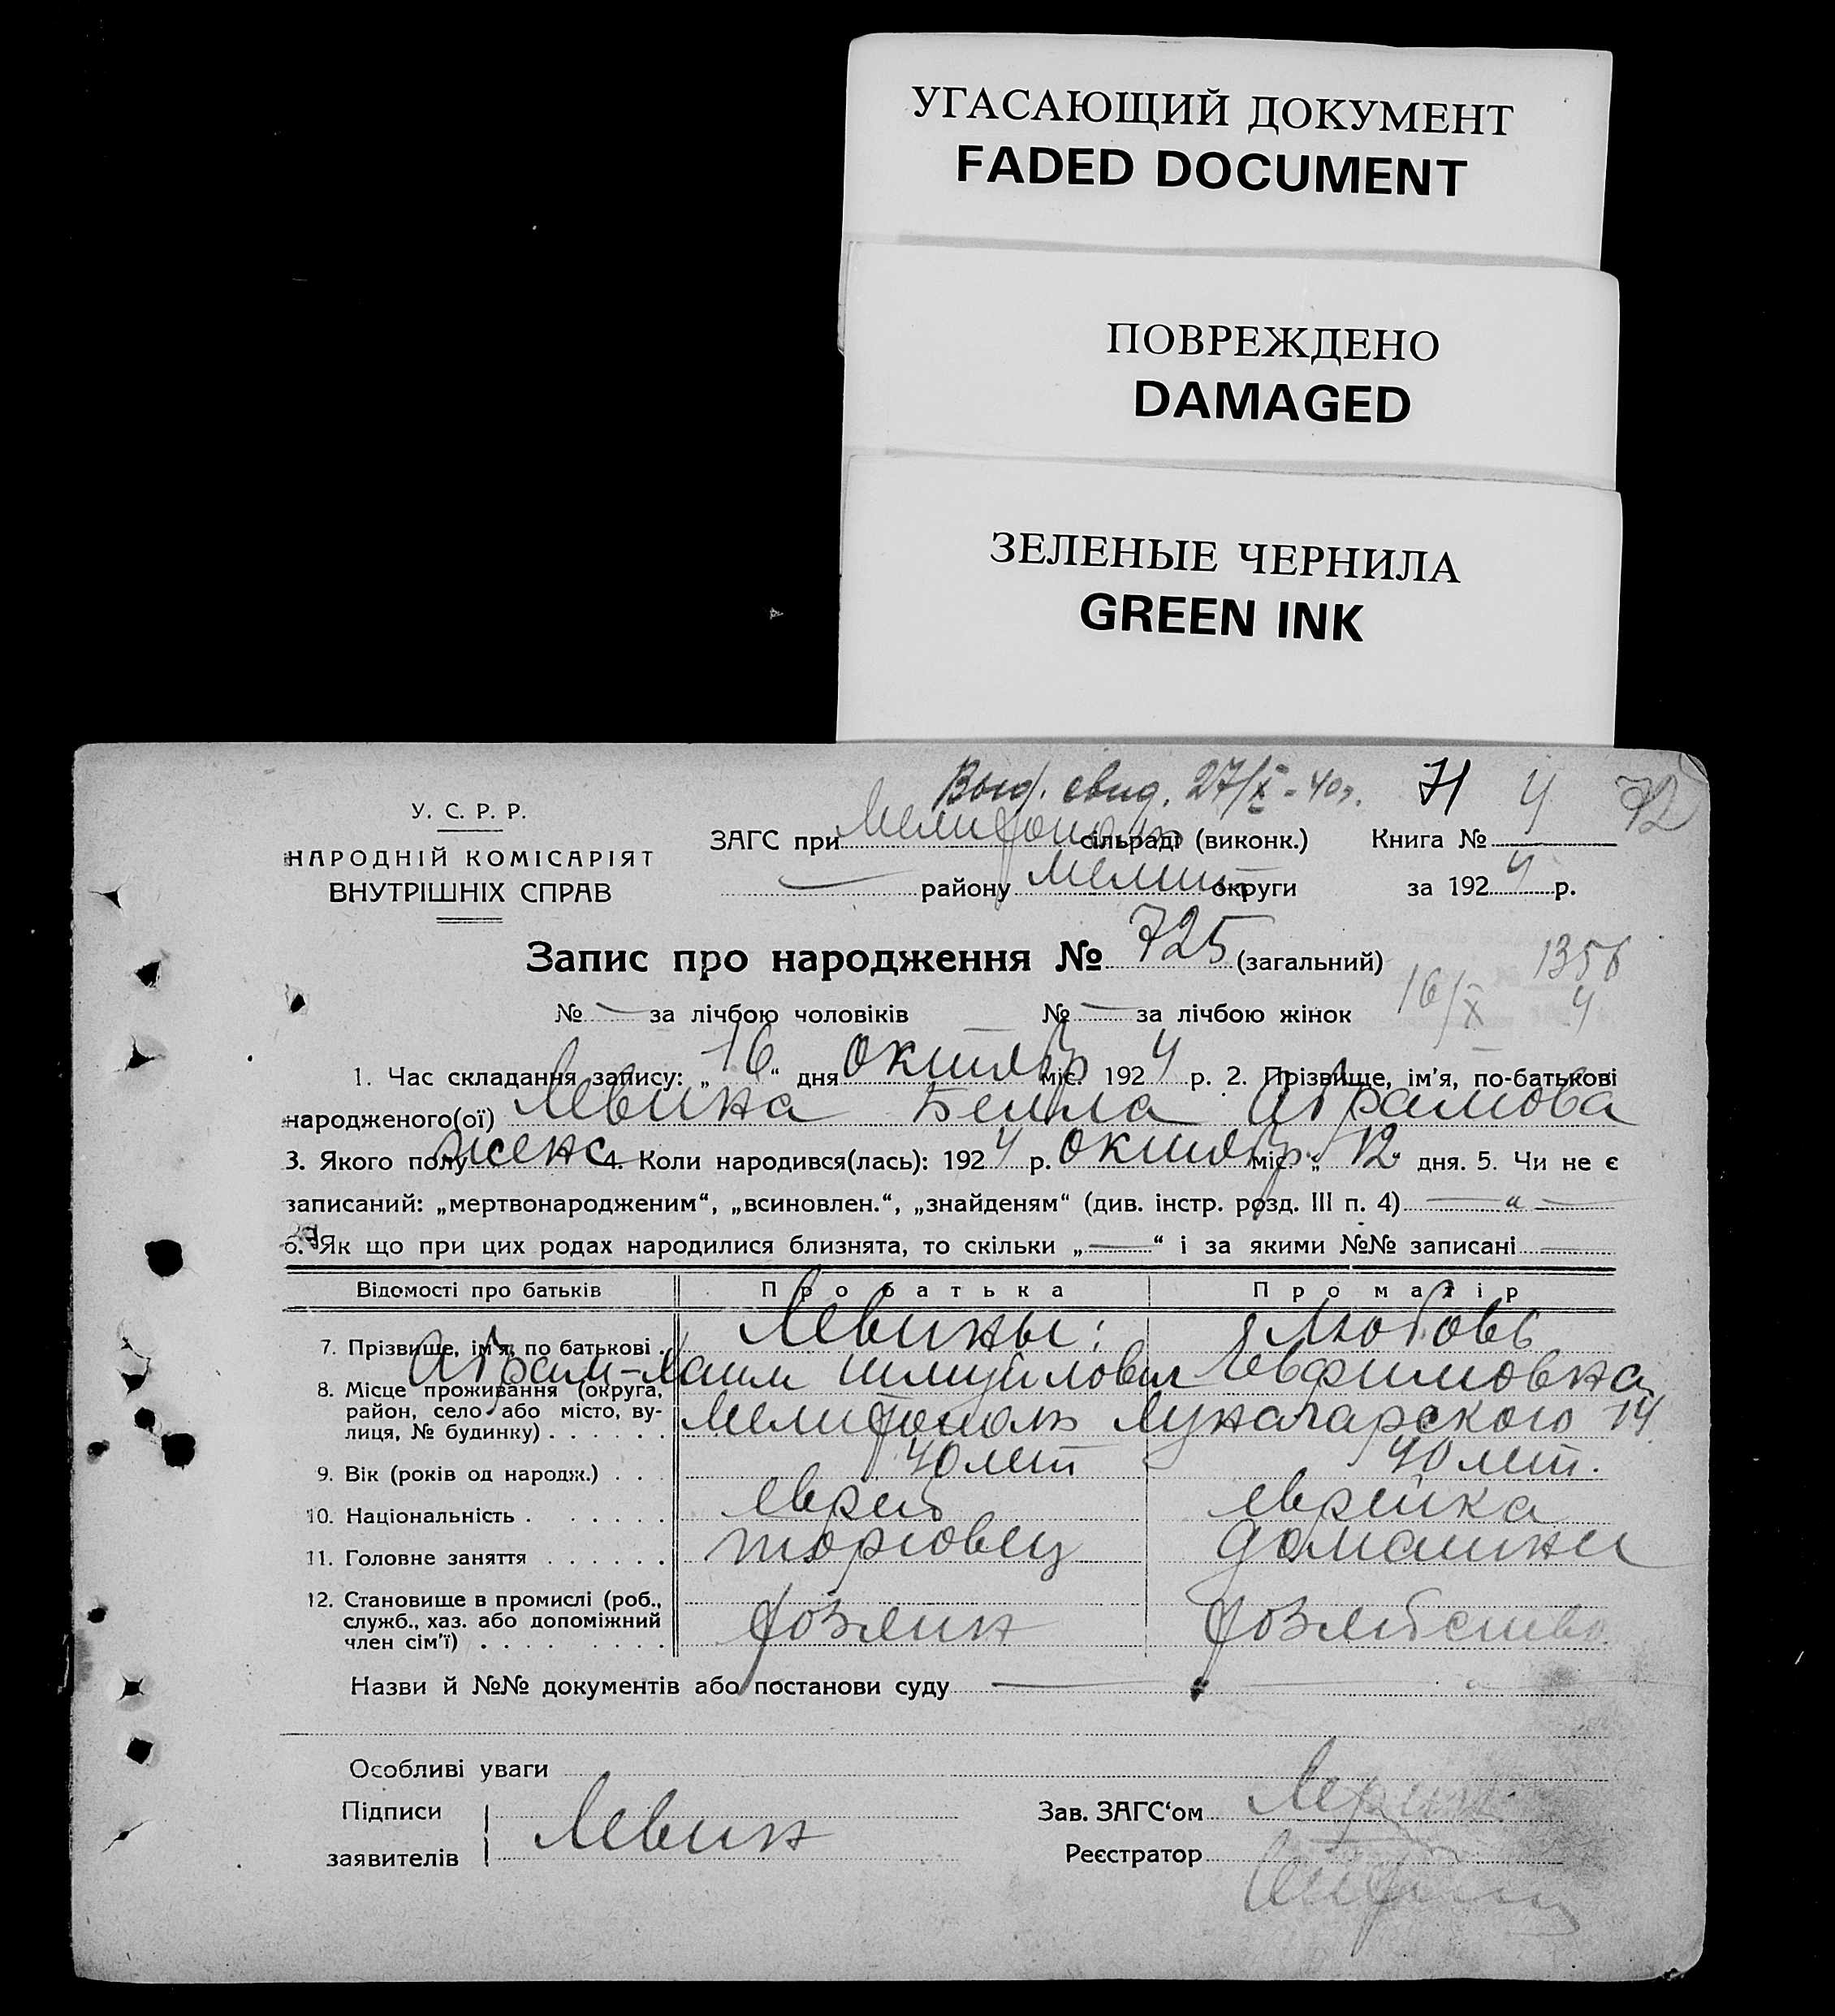 УГАСАЮЩИЙ ДОКУМЕНТ
FADED DOCUMENT
ПОВРЕЖДЕНО
DAMAGED
ЗЕЛЕНЫЕ ЧЕРНИЛА
GREEN INK
Выд. свид. 27/X - 40г. 71 4 72
У. С. Р. Р.
НАРОДНІЙ КОМІСАРІЯТ
ВНУТРІШНІХ СПРАВ
ЗАГС при Мелитополь сільраді (виконк.) Книга № 4
району Мелит округи за 1924 р.
Запис про народження № 725 (загальний)
1356
№ — за лічбою чоловіків № — за лічбою жінок 16/X 4
1. Час складання запису: „16“ дня октябр міс. 1924 р. 2. Прізвище, ім'я, по-батькові
народженого(ої) Левина Бейла Абрамова
3. Якого полу женс 4. Коли народився(лась): 1924 р. октябр міс. „12“ дня. 5. Чи не є
записаний: „мертвонародженим“, „всиновлен.“, „знайденям“ (див. інстр. розд. III п. 4) — „ —
6. Як що при цих родах народилися близнята, то скільки „—“ і за якими №№ записані —
Відомості про батьків Про батька Про матір
7. Прізвище, ім'я, по батькові . Левины: Любовь
Абрам-Хаим Шмуйлович Евфимовна
8. Місце проживання (округа,
район, село або місто, ву-
лиця, № будинку) . . . . . . Мелитополь Луначарского 14
9. Вік (років од народж.) . . . 40 лет 40 лет.
10. Національність . . . . . . еврей еврейка
11. Головне заняття . . . . . . торговец домашнее
12. Становище в промислі (роб.,
служб., хаз. або допоміжний
член сім'ї) . . . . . . . . хозяин хозяйство
Назви й №№ документів або постанови суду —
Особливі уваги
Підписи
заявителів Левин
Зав. ЗАГС‘ом
Реєстратор